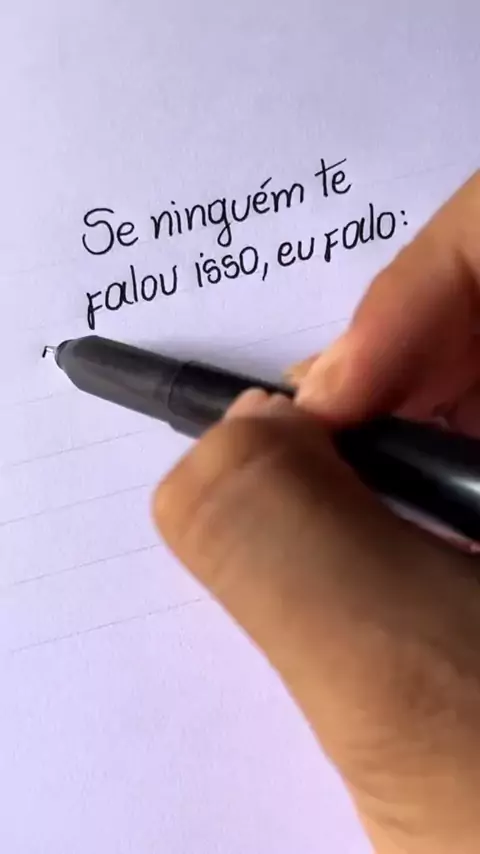 Se ninguém te
falou isso, eu falo: